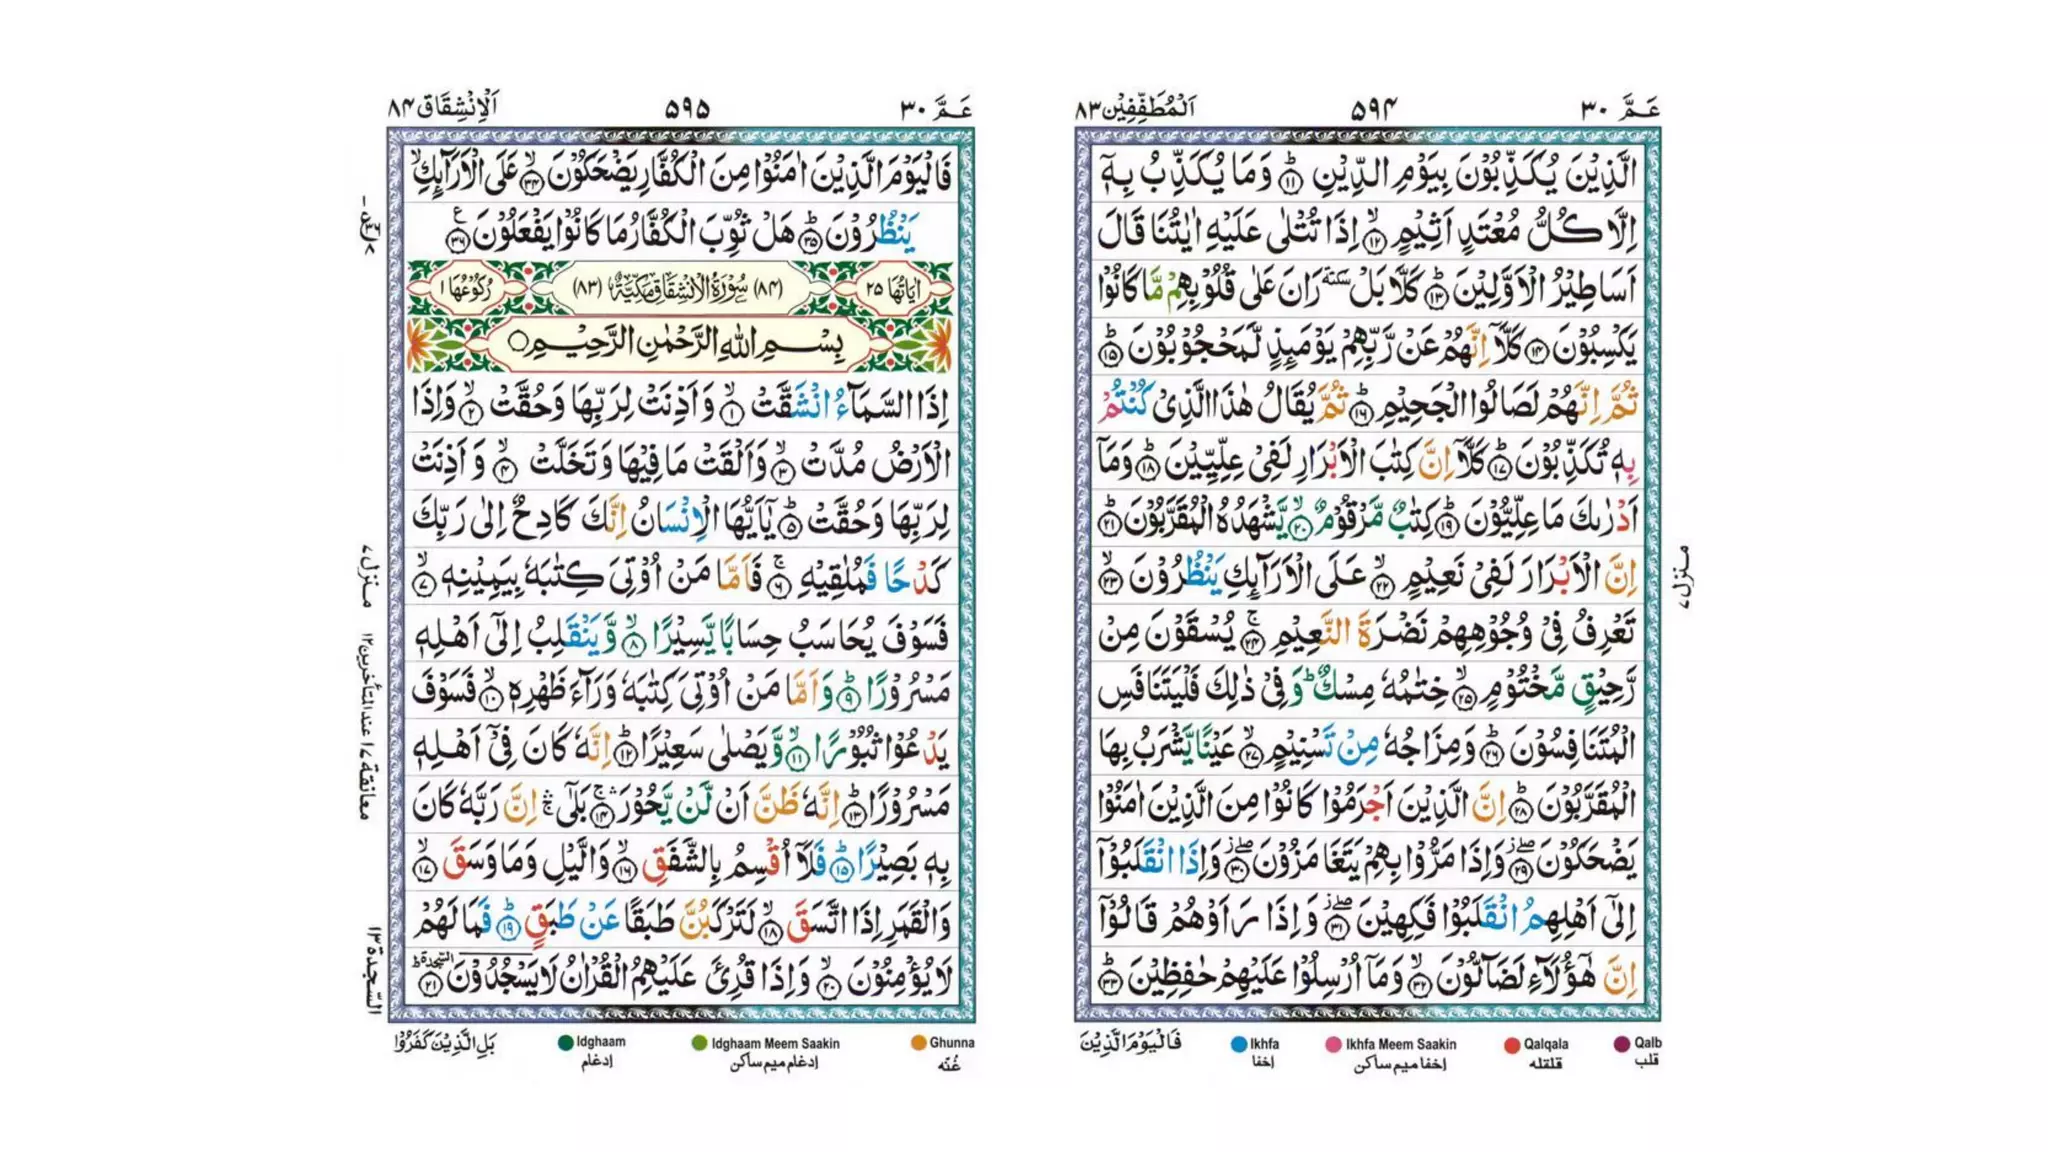 عَمَّ ۳۰
۵۹۴
اَلْمُطَفِّفِيْن ۸۳
الَّذِيْنَ يُكَذِّبُوْنَ بِيَوْمِ الدِّيْنِ ؕ‏ ﴿۱۱﴾ وَمَا يُكَذِّبُ بِهٖۤ
اِلَّا كُلُّ مُعْتَدٍ اَثِيْمٍ ۙ‏ ﴿۱۲﴾ اِذَا تُتْلٰى عَلَيْهِ اٰيٰتُنَا قَالَ
اَسَاطِيْرُ الْاَوَّلِيْنَ ؕ‏ ﴿۱۳﴾ كَلَّا بَلْ ٚ سكتة رَانَ عَلٰى قُلُوْبِهِمْ مَّا كَانُوْا
يَكْسِبُوْنَ ﴿۱۴﴾ كَلَّاۤ اِنَّهُمْ عَنْ رَّبِّهِمْ يَوْمَئِذٍ لَّمَحْجُوْبُوْنَ ؕ‏ ﴿۱۵﴾
ثُمَّ اِنَّهُمْ لَصَالُوا الْجَحِيْمِ ؕ‏ ﴿۱۶﴾ ثُمَّ يُقَالُ هٰذَا الَّذِىْ كُنْتُمْ
بِهٖ تُكَذِّبُوْنَ ؕ‏ ﴿۱۷﴾ كَلَّاۤ اِنَّ كِتٰبَ الْاَبْرَارِ لَفِىْ عِلِّيِّيْنَ ؕ‏ ﴿۱۸﴾ وَمَاۤ
اَدْرٰىكَ مَا عِلِّيُّوْنَ ؕ‏ ﴿۱۹﴾ كِتٰبٌ مَّرْقُوْمٌ ۙ‏ ﴿۲۰﴾ يَّشْهَدُهُ الْمُقَرَّبُوْنَ ؕ‏ ﴿۲۱﴾
اِنَّ الْاَبْرَارَ لَفِىْ نَعِيْمٍ ۙ‏ ﴿۲۲﴾ عَلَى الْاَرَآئِكِ يَنْظُرُوْنَ ۙ‏ ﴿۲۳﴾
تَعْرِفُ فِىْ وُجُوْهِهِمْ نَضْرَةَ النَّعِيْمِ ۚ‏ ﴿۲۴﴾ يُسْقَوْنَ مِنْ
رَّحِيْقٍ مَّخْتُوْمٍ ۙ‏ ﴿۲۵﴾ خِتٰمُهٗ مِسْكٌ ؕ وَفِىْ ذٰلِكَ فَلْيَتَنَافَسِ
الْمُتَنَافِسُوْنَ ؕ‏ ﴿۲۶﴾ وَمِزَاجُهٗ مِنْ تَسْنِيْمٍ ۙ‏ ﴿۲۷﴾ عَيْنًا يَّشْرَبُ بِهَا
الْمُقَرَّبُوْنَ ؕ‏ ﴿۲۸﴾ اِنَّ الَّذِيْنَ اَجْرَمُوْا كَانُوْا مِنَ الَّذِيْنَ اٰمَنُوْا
يَضْحَكُوْنَ ۖ‏ ﴿۲۹﴾ وَاِذَا مَرُّوْا بِهِمْ يَتَغَامَزُوْنَ ۖ‏ ﴿۳۰﴾ وَاِذَا انْقَلَبُوْۤا
اِلٰٓى اَهْلِهِمُ انْقَلَبُوْا فَكِهِيْنَ ۖ‏ ﴿۳۱﴾ وَاِذَا رَاَوْهُمْ قَالُوْۤا
اِنَّ هٰٓؤُلَاۤءِ لَضَآلُّوْنَ ۙ‏ ﴿۳۲﴾ وَمَاۤ اُرْسِلُوْا عَلَيْهِمْ حٰفِظِيْنَ ؕ‏ ﴿۳۳﴾
منزل ۷
Qalb
قلب
Qalqala
قلقله
Ikhfa Meem Saakin
إخفا ميم ساكن
Ikhfa
إخفا
فَالْيَوْمَ الَّذِيْنَ
عَمَّ ۳۰
۵۹۵
اَلْاِنْشِقَاق ۸۴
فَالْيَوْمَ الَّذِيْنَ اٰمَنُوْا مِنَ الْكُفَّارِ يَضْحَكُوْنَ ۙ‏ ﴿۳۴﴾ عَلَى الْاَرَآئِكِ ۙ
يَنْظُرُوْنَ ؕ‏ ﴿۳۵﴾ هَلْ ثُوِّبَ الْكُفَّارُ مَا كَانُوْا يَفْعَلُوْنَ ﴿۳۶﴾ ع
اٰيَاتُهَا ۲۵
(۸۴) سُوْرَةُ الْاِنْشِقَاقِ مَكِّيَّةٌ (۸۳)
رُكُوْعُهَا ۱
بِسْمِ اللّٰهِ الرَّحْمٰنِ الرَّحِيْمِ
اِذَا السَّمَآءُ انْشَقَّتْ ۙ‏ ﴿۱﴾ وَاَذِنَتْ لِرَبِّهَا وَحُقَّتْ ۙ‏ ﴿۲﴾ وَاِذَا
الْاَرْضُ مُدَّتْ ۙ‏ ﴿۳﴾ وَاَلْقَتْ مَا فِيْهَا وَتَخَلَّتْ ۙ‏ ﴿۴﴾ وَاَذِنَتْ
لِرَبِّهَا وَحُقَّتْ ؕ‏ ﴿۵﴾ يٰۤاَيُّهَا الْاِنْسَانُ اِنَّكَ كَادِحٌ اِلٰى رَبِّكَ
كَدْحًا فَمُلٰقِيْهِ ۚ‏ ﴿۶﴾ فَاَمَّا مَنْ اُوْتِىَ كِتٰبَهٗ بِيَمِيْنِهٖ ۙ‏ ﴿۷﴾
فَسَوْفَ يُحَاسَبُ حِسَابًا يَّسِيْرًا ۙ‏ ﴿۸﴾ وَّيَنْقَلِبُ اِلٰٓى اَهْلِهٖ
مَسْرُوْرًا ؕ‏ ﴿۹﴾ وَاَمَّا مَنْ اُوْتِىَ كِتٰبَهٗ وَرَآءَ ظَهْرِهٖ ۙ‏ ﴿۱۰﴾ فَسَوْفَ
يَدْعُوْا ثُبُوْرًا ۙ‏ ﴿۱۱﴾ وَّيَصْلٰى سَعِيْرًا ؕ‏ ﴿۱۲﴾ اِنَّهٗ كَانَ فِىْۤ اَهْلِهٖ
مَسْرُوْرًا ؕ‏ ﴿۱۳﴾ اِنَّهٗ ظَنَّ اَنْ لَّنْ يَّحُوْرَ ۛۚ‏ ﴿۱۴﴾ بَلٰٓى ۛۚ اِنَّ رَبَّهٗ كَانَ
بِهٖ بَصِيْرًا ؕ‏ ﴿۱۵﴾ فَلَاۤ اُقْسِمُ بِالشَّفَقِ ۙ‏ ﴿۱۶﴾ وَالَّيْلِ وَمَا وَسَقَ ۙ‏ ﴿۱۷﴾
وَالْقَمَرِ اِذَا اتَّسَقَ ۙ‏ ﴿۱۸﴾ لَتَرْكَبُنَّ طَبَقًا عَنْ طَبَقٍ ؕ‏ ﴿۱۹﴾ فَمَا لَهُمْ
لَا يُؤْمِنُوْنَ ۙ‏ ﴿۲۰﴾ وَاِذَا قُرِئَ عَلَيْهِمُ الْقُرْاٰنُ لَا يَسْجُدُوْنَ ؕ السجدة ﴿۲۱﴾
منزل ۷
معانقة ۱۷ عند المتأخرين ۱۲
السّجدة ۱۳
Ghunna
غُنّه
Idghaam Meem Saakin
إدغام ميم ساكن
Idghaam
إدغام
بَلِ الَّذِيْنَ كَفَرُوْا